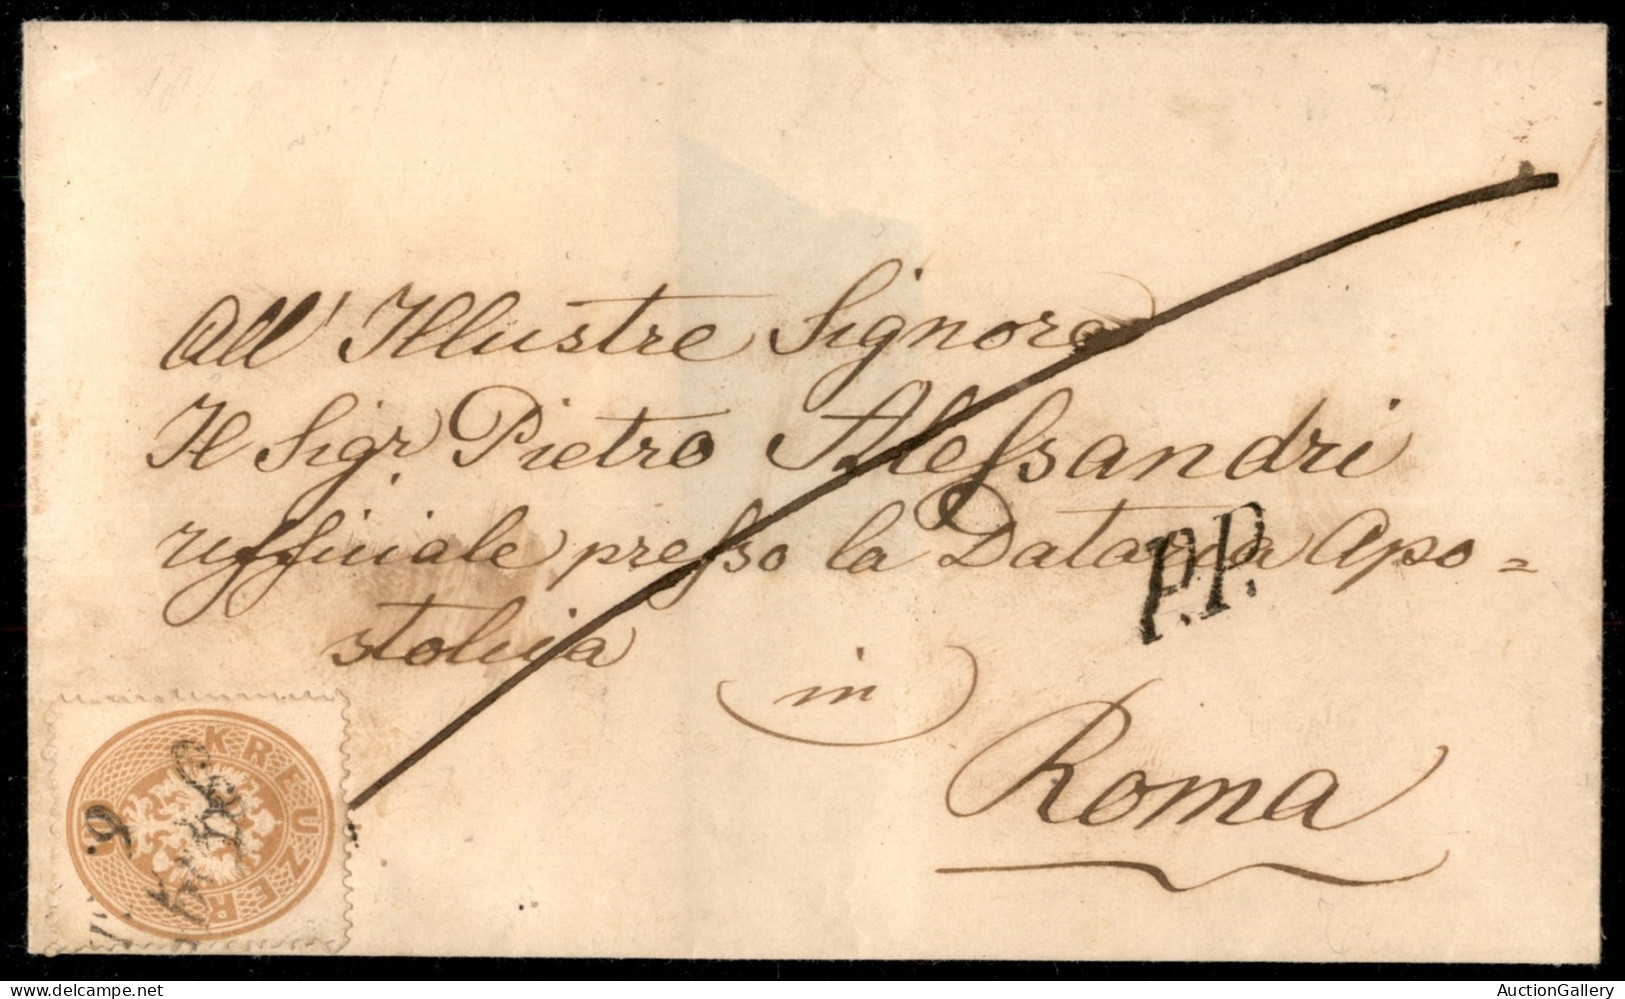 All' Illustre Signore
Il Sigr. Pietro Alessandri
uffiziale presso la Dataria Apo=
stolica
P.P.
in
Roma
KREUZER
delcampe.net
AuctionGallery